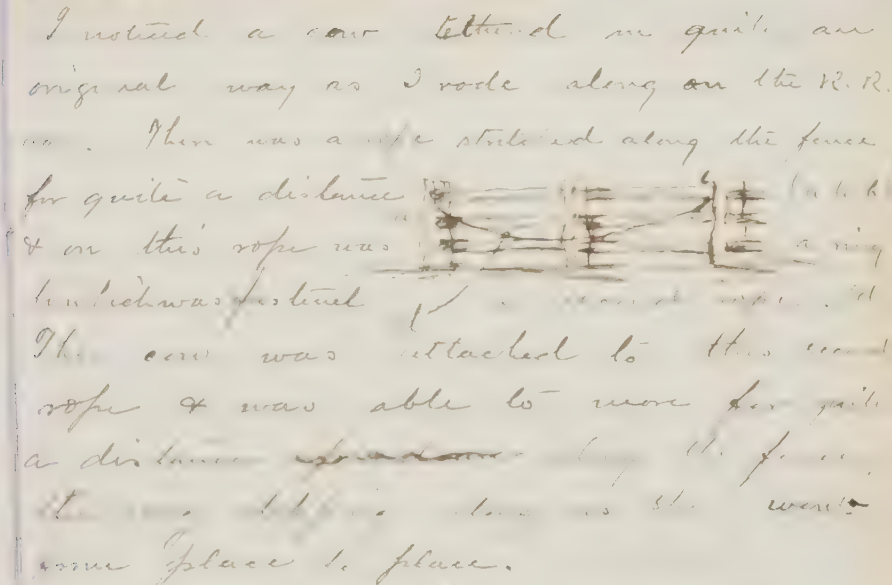 I noticed a cow tethered in quite an
original way as I rode along on the R.R.
There was a stretched along the fence
for quite a distance
& on this rope was a ring
to which was fastened
The cow was attached to this second
rope & was able to move for quite
a distance the fence,
the as she went
place to place.